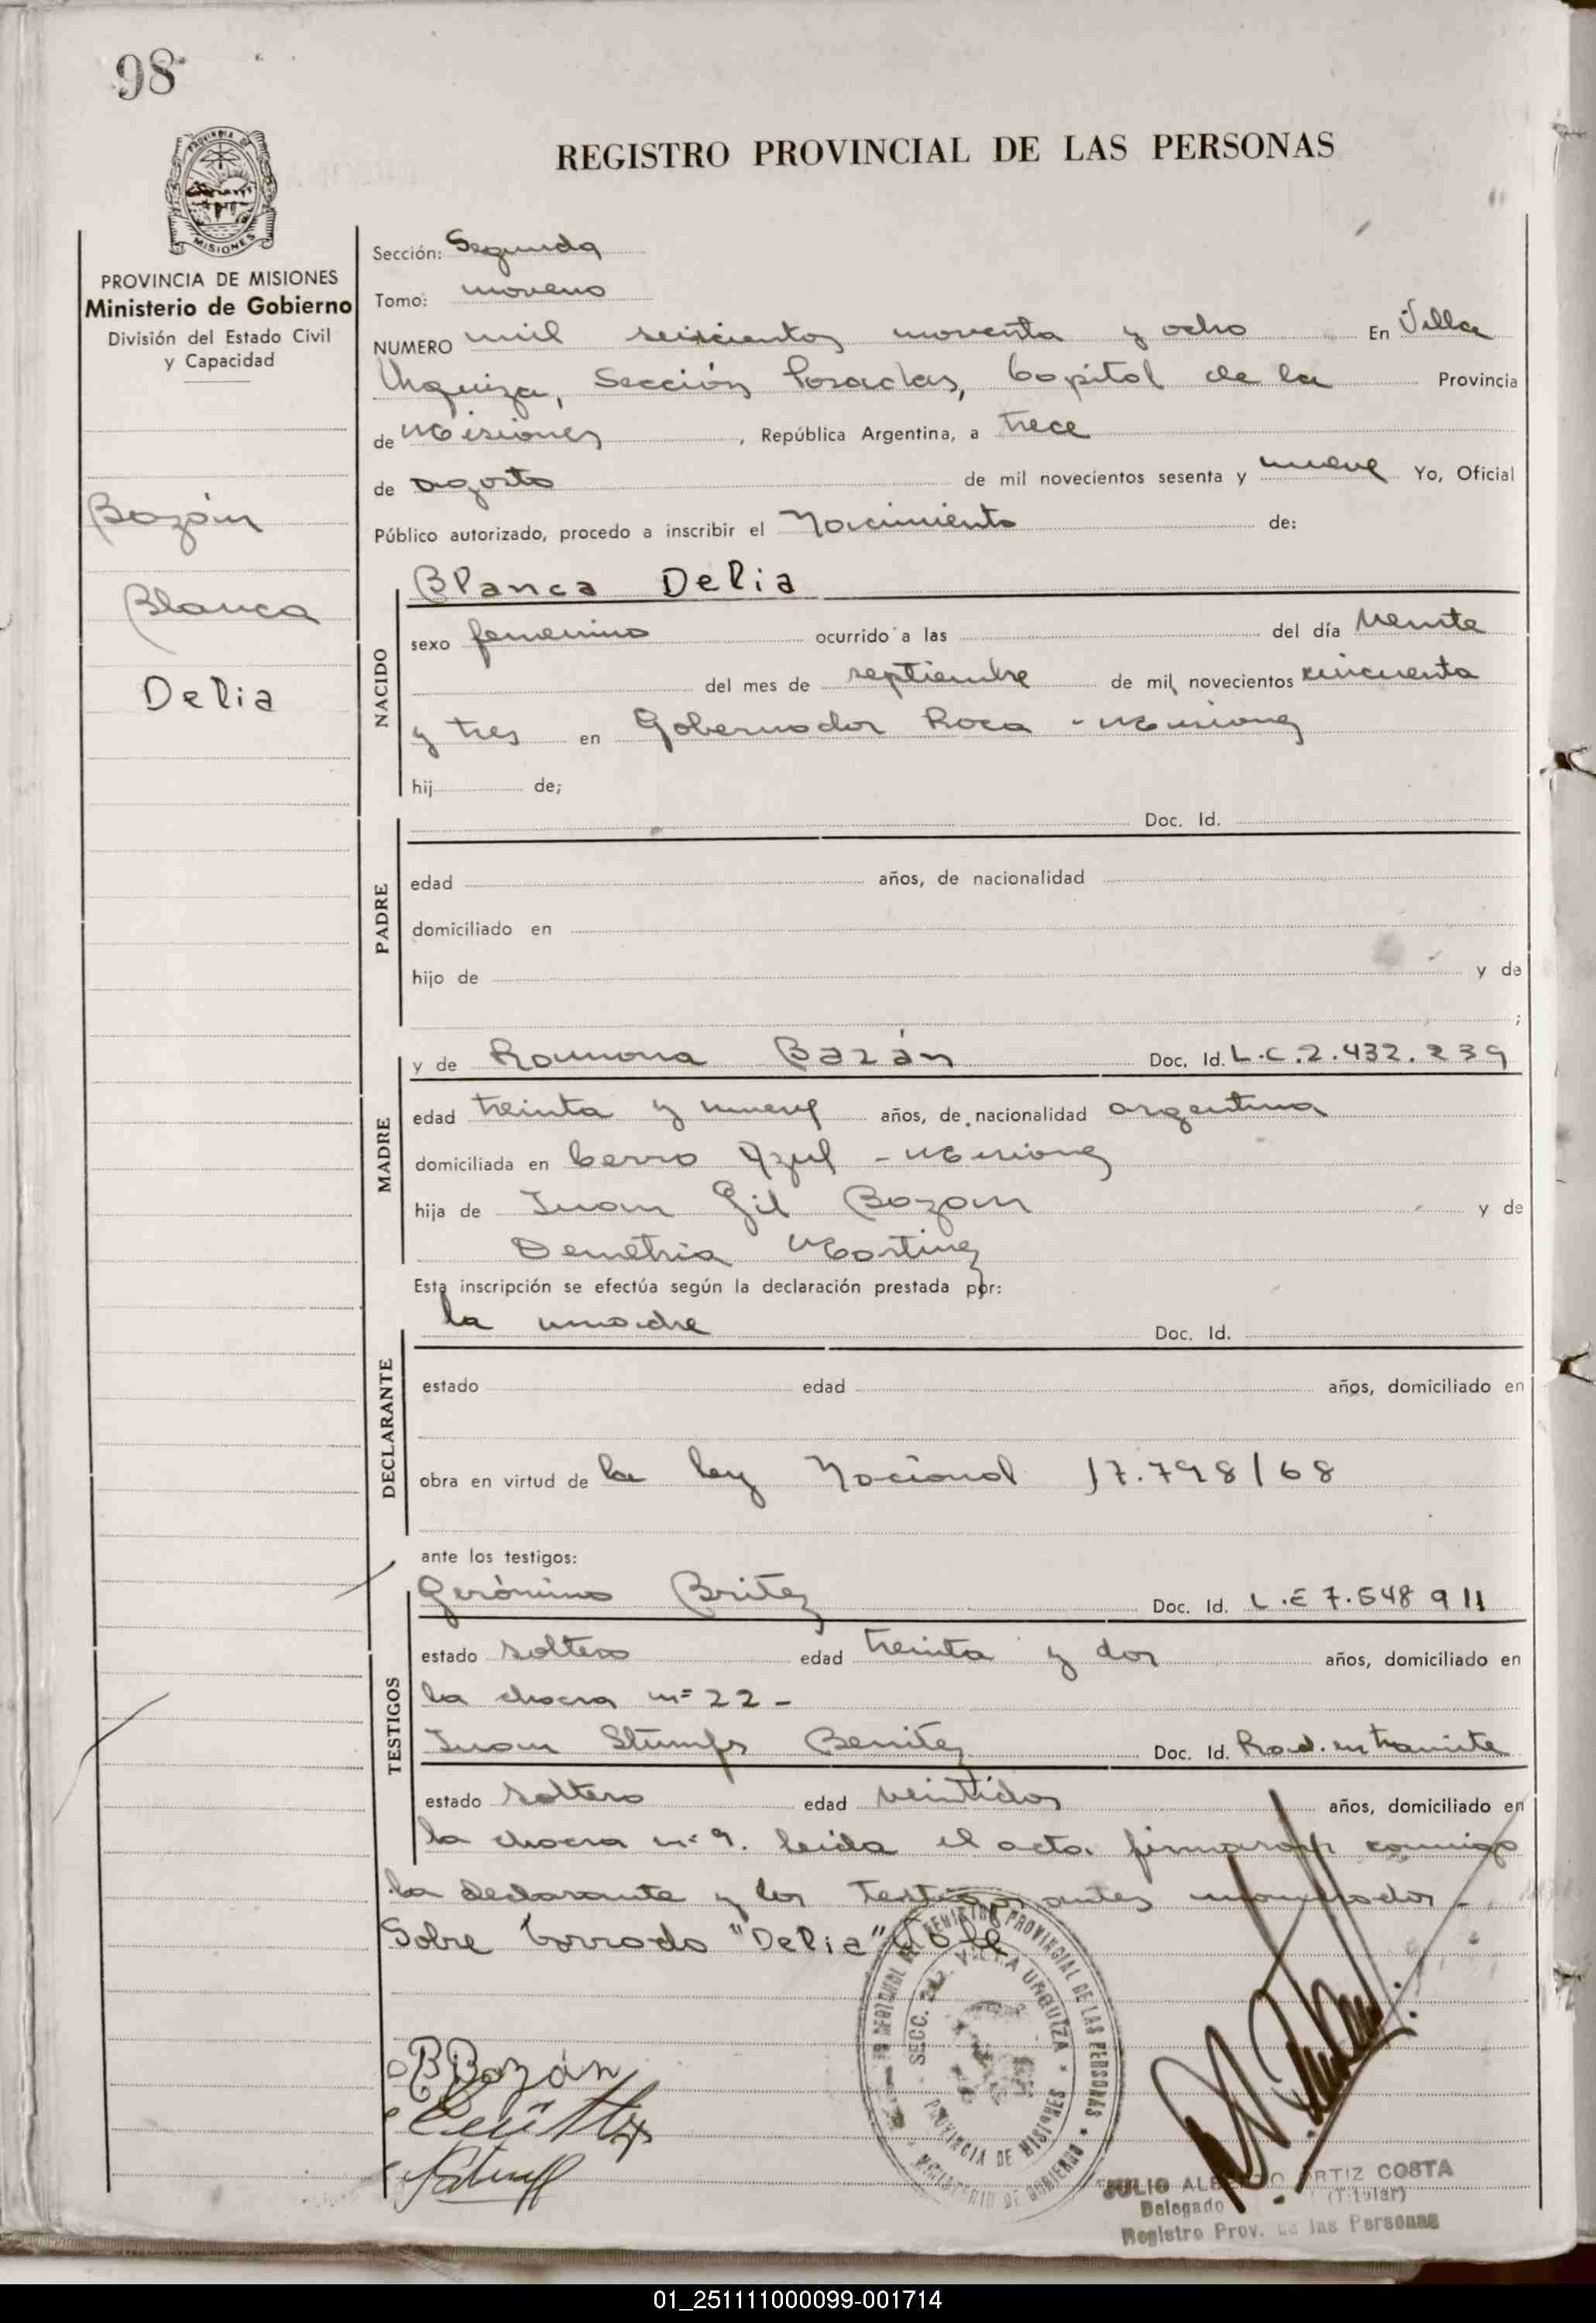 98
REGISTRO PROVINCIAL DE LAS PERSONAS
PROVINCIA DE
MISIONES
PROVINCIA DE MISIONES
Ministerio de Gobierno
División del Estado Civil
y Capacidad
Bazán
Blanca
Delia
Sección: Segunda
Tomo: noveno
NUMERO mil seiscientos noventa y ocho En Villa
Urquiza, Sección Posadas, Capital de la Provincia
de Misiones, República Argentina, a trece
de agosto de mil novecientos sesenta y nueve Yo, Oficial
Público autorizado, procedo a inscribir el Nacimiento de:
NACIDO
Blanca Delia
sexo femenino ocurrido a las del día veinte
del mes de septiembre de mil novecientos cincuenta
y tres en Gobernador Roca - Misiones
hij de;
PADRE
Doc. Id.
edad años, de nacionalidad
domiciliado en
hijo de y de
;
MADRE
y de Ramona Bazán Doc. Id. L.C. 2.432.239
edad treinta y nueve años, de nacionalidad argentina
domiciliada en Cerro Azul - Misiones
hija de Juan Gil Bazan y de
Demetria Martinez
Esta inscripción se efectúa según la declaración prestada por:
DECLARANTE
la madre Doc. Id.
estado edad años, domiciliado en
obra en virtud de la ley Nacional 17.798/68
ante los testigos:
TESTIGOS
Gerónimo Britez Doc. Id. L.E 7.548 911
estado soltero edad treinta y dos años, domiciliado en
la chacra nº 22 -
Juan Stumfs Benitez Doc. Id. Rad. en tramite
estado soltero edad veintidos años, domiciliado en
la chacra nº 9. leida el acta, firmaron conmigo
la declarante y los testigos antes nombrados -
Sobre borrado "Delia" Vale
RBazán
REGISTRO PROVINCIAL DE LAS PERSONAS
SECC. 2da. VILLA URQUIZA
PROVINCIA DE MISIONES
MINISTERIO DE GOBIERNO
JULIO ALBERTO ORTIZ COSTA
Delegado (Titular)
Registro Prov. de las Personas
01_251111000099-001714